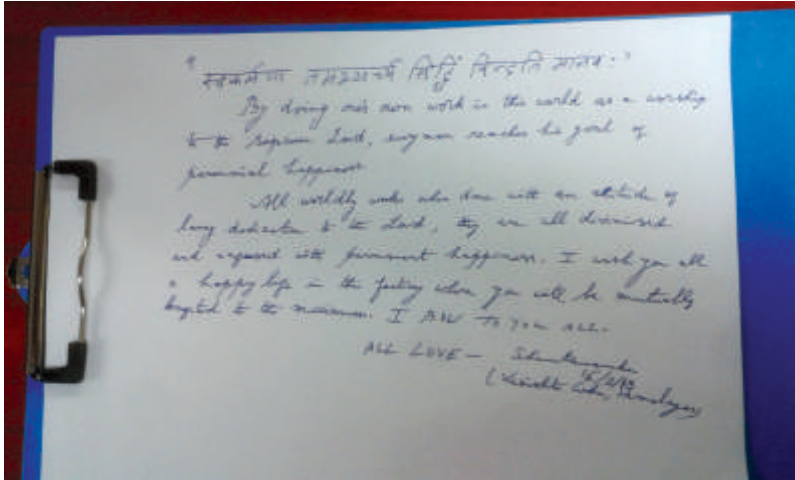 " स्वकर्मणा तमभ्यर्च्य सिद्धिं विन्दति मानवः "
By doing one's own work in the world as a worship
to the Supreme Lord, every man reaches his goal of
perennial happiness
All worldly works when done with an attitude of
loving dedication to the Lord, they are all divinised
and with permanent happiness. I wish you all
a happy life in the where you will be mutually
to the maximum. I BOW TO YOU ALL.
ALL LOVE —
( Himalayas)